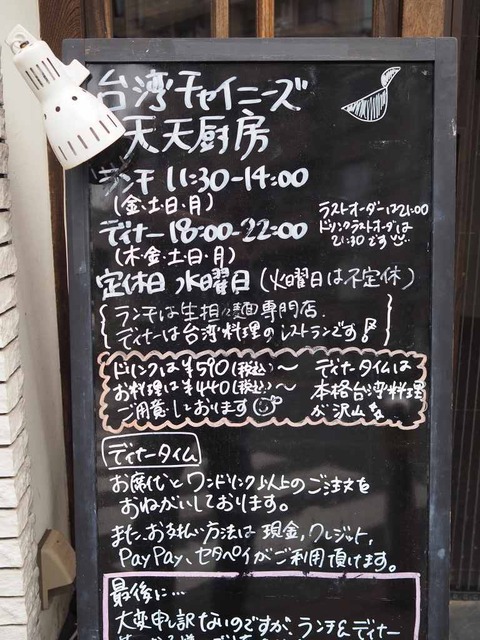 台湾チャイニーズ
天天厨房
ランチ 11:30-14:00
(金・土・日・月)
ディナー 18:00-22:00
(木・金・土・日・月)
ラストオーダーは21:00
ドリンクラストオーダーは
21:30です
定休日 水曜日(火曜日は不定休)
ランチは生担々麺専門店.
ディナーは台湾料理のレストランです
ドリンクは¥590(税込)～
お料理は¥440(税込)～
ご用意しております
ディナータイムは
本格台湾料理
が沢山
ディナータイム
お席代とワンドリンク以上のご注文を
おねがいしております。
また、お支払い方法は現金、クレジット、
PayPay、セタペイがご利用頂けます。
最後に…
大変申し訳ないのですが ランチ&ディナー